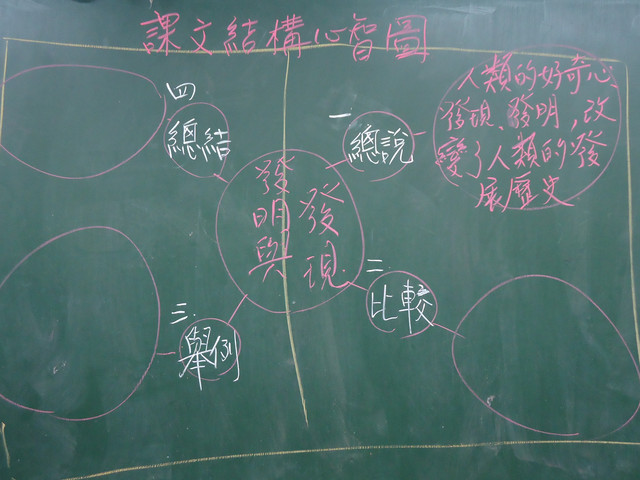 課文結構心智圖
一.
總說
人類的好奇心、
發現、發明，改
變了人類的發
展歷史
發現
發明與
二.
比較
三.
舉例
四
總結